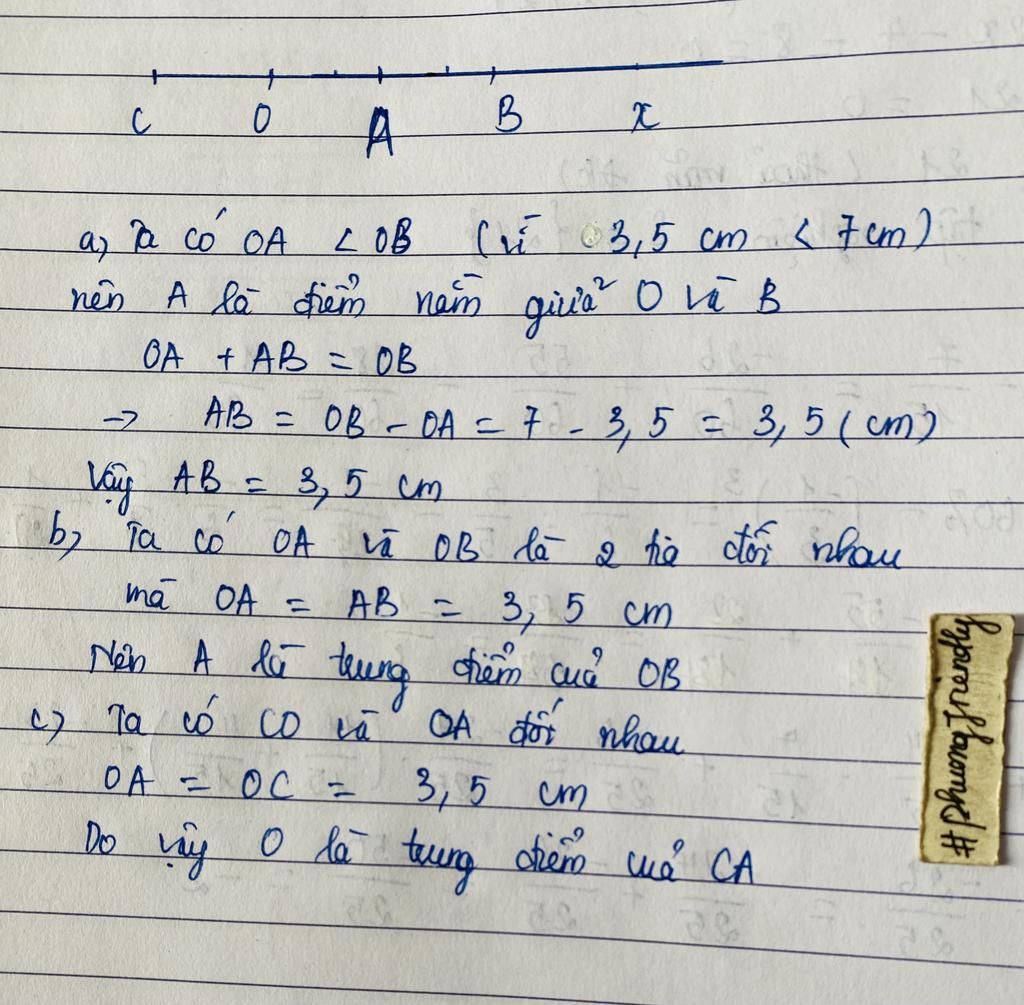 C O A B x
a, Ta có OA < OB (vì 3,5 cm < 7cm)
nên A là điểm nằm giữa O và B
OA + AB = OB
→ AB = OB - OA = 7 - 3,5 = 3,5 (cm)
Vậy AB = 3,5 cm
b, Ta có OA và OB là 2 tia đối nhau
mà OA = AB = 3,5 cm
Nên A là trung điểm của OB
c, Ta có CO và OA đối nhau
OA = OC = 3,5 cm
Do vậy O là trung điểm của CA
#phuongfriendly